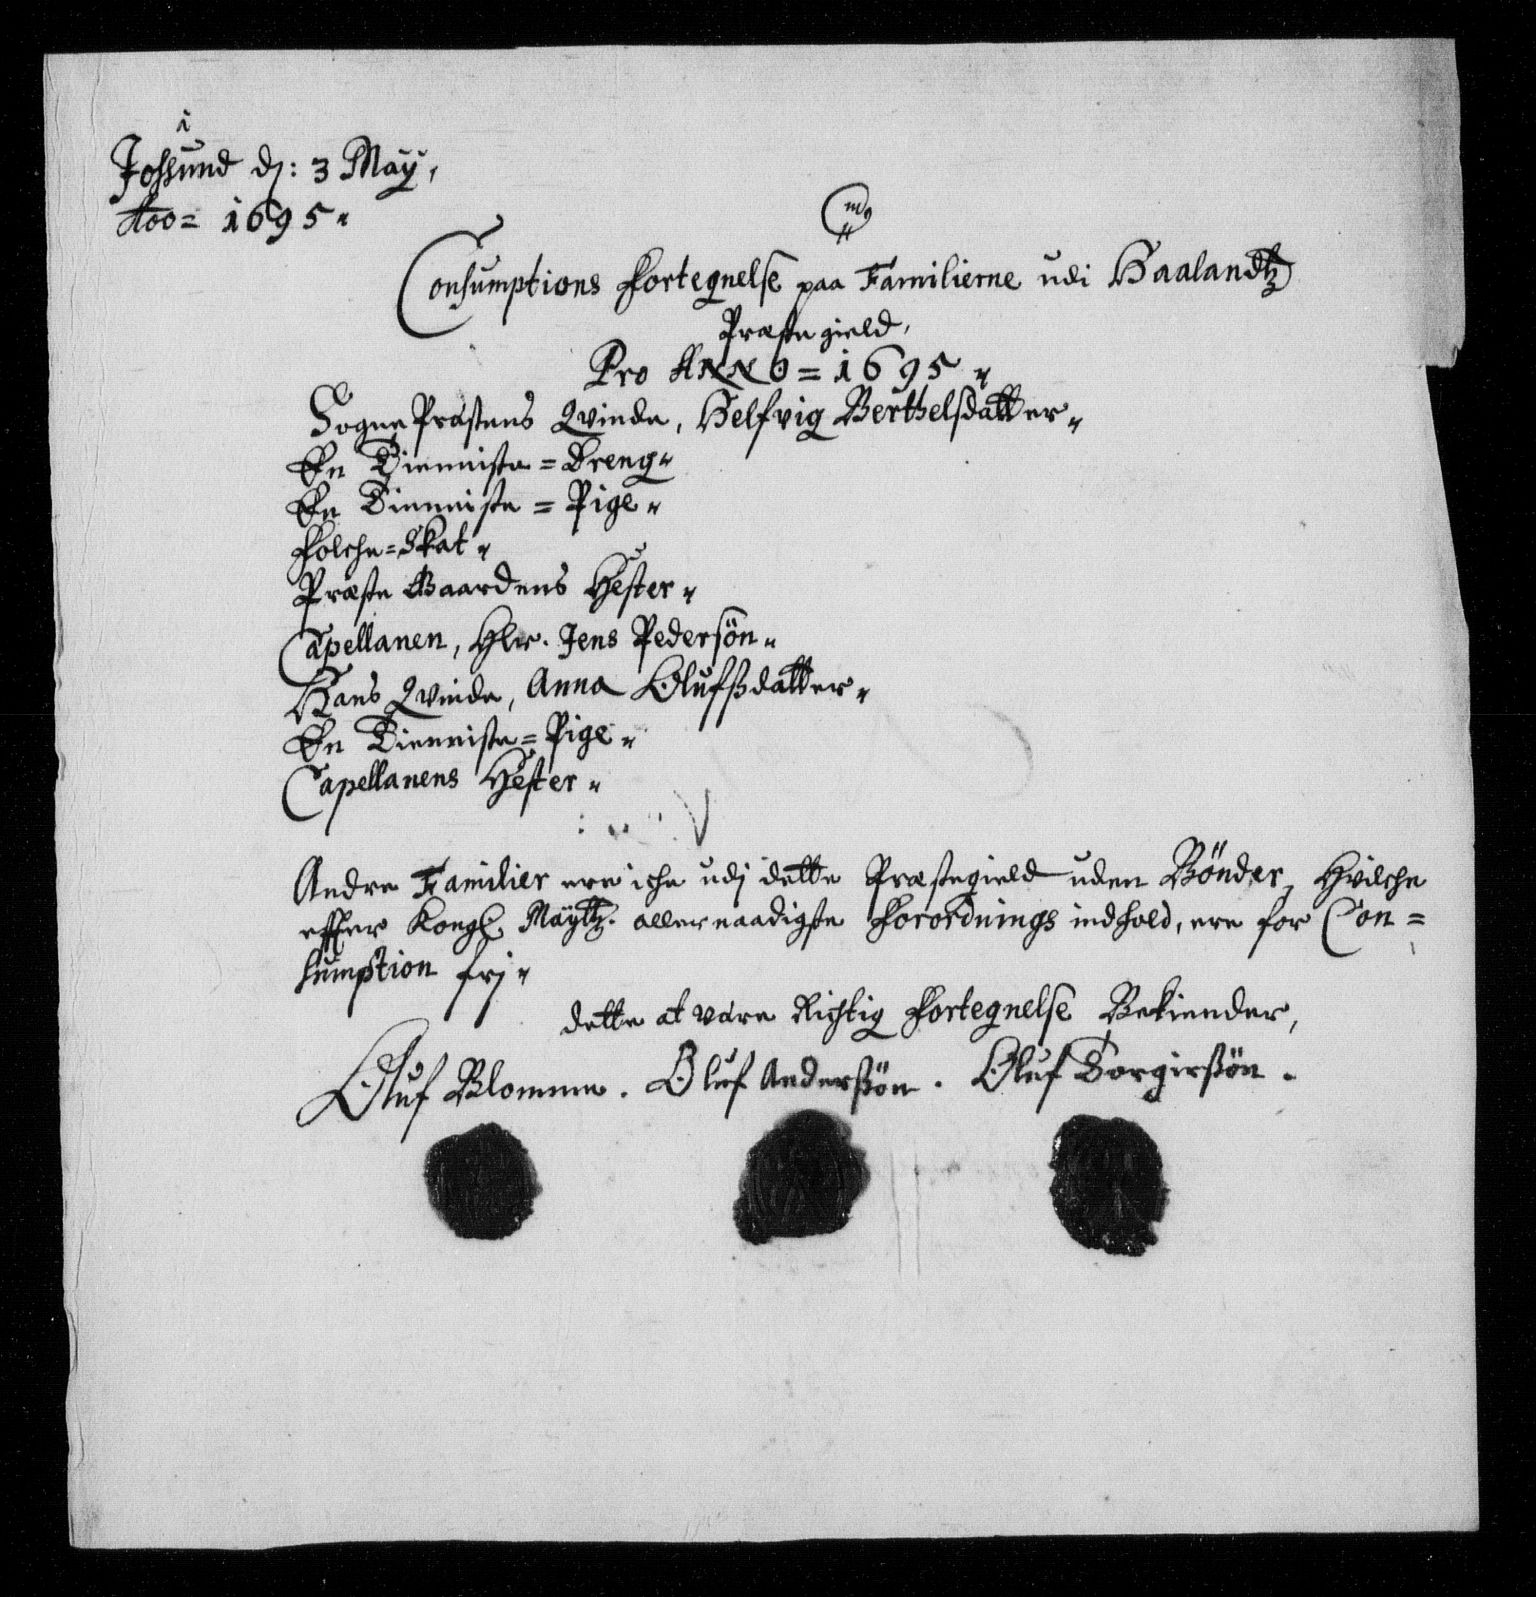 i
Johsund dj: 3 May,
Aoo= 1695"
Consumptions Fortegnelse paa Familierne udi Haalandtz
Præste gield,
Pro ANNO = 1695 "
Sogne Præstens Qvinde, Helfvig Berthelsdatter"
En Tienniste = Dreng"
En Tienniste = Pige"
Folche = Skat"
Præste Gaardens Hester"
Capellanen, Hlr. Jens Pedersön"
Hans Qvinde, Anna Olufsdatter"
En Tienniste = Pige"
Capellanens Hester"
Andre Familier ere iche udj dette Præstegield uden Bönder, Hvilche
effter Kongl. Maytz. allernaadigste Forordnings indhold, ere for Con=
sumption frj"
dette at være Richtig Fortegnelse Bekiender,
Oluf Blomme. Oluf Anderßön. Oluf Torgirßön.